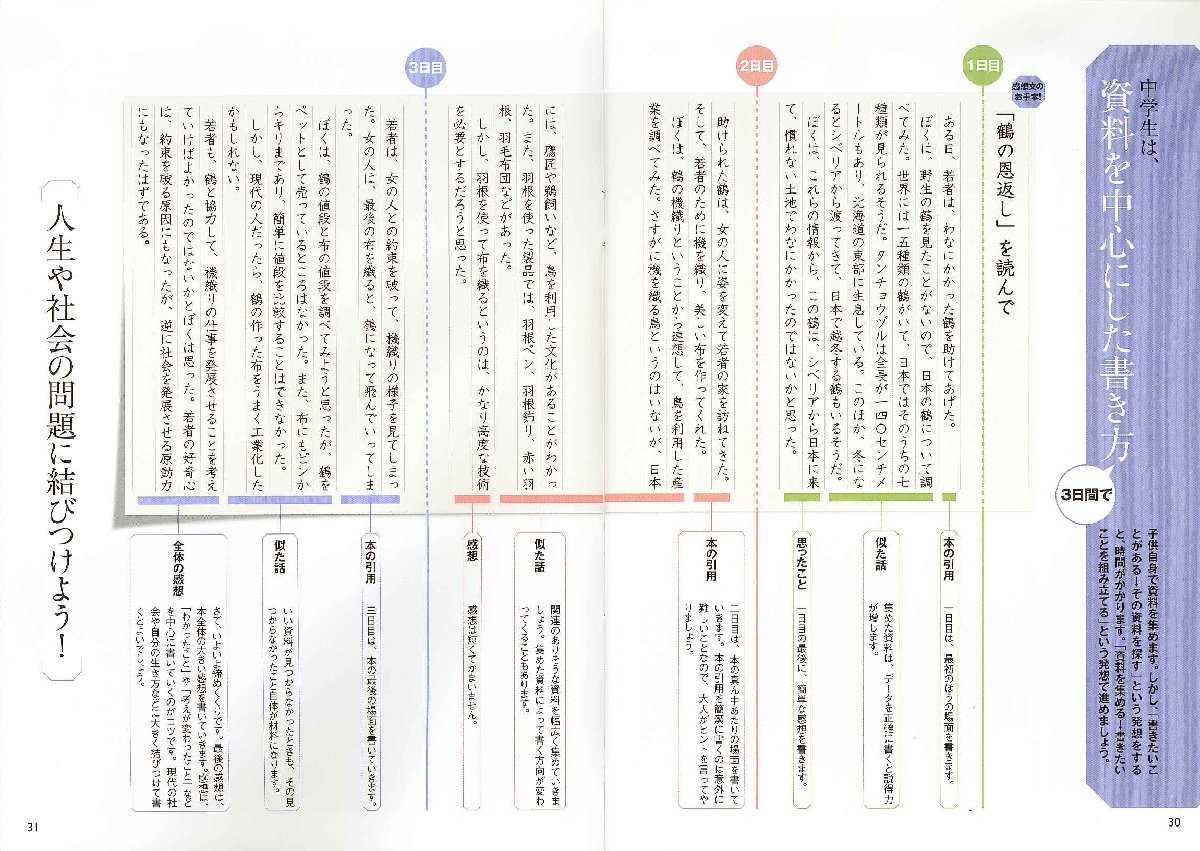 中学生は、
資料を中心にした書き方
3日間で
子供自身で資料を集めます。しかし、「書きたいこ
とがある→その資料を探す」という発想をする
と、時間がかかります。「資料を集める→書きたい
ことを組み立てる」という発想で進めましょう。
1日目
感想文の
お手本!
「鶴の恩返し」を読んで
ある日、若者は、わなにかかった鶴を助けてあげた。
ぼくは、野生の鶴を見たことがないので、日本の鶴について調
べてみた。世界には一五種類の鶴がいて、日本ではそのうちの七
種類が見られるそうだ。タンチョウヅルは全長が一四〇センチメ
ートルもあり、北海道の東部に生息している。このほか、冬にな
るとシベリアから渡ってきて、日本で越冬する鶴もいるそうだ。
ぼくは、これらの情報から、この鶴は、シベリアから日本に来
て、慣れない土地でわなにかかったのではないかと思った。
本の引用
一日目は、最初のほうの場面を書きます。
似た話
集めた資料は、データを正確に書くと説得力
が増します。
思ったこと
一日目の最後に、簡単な感想を書きます。
2日目
助けられた鶴は、女の人に姿を変えて若者の家を訪ねてきた。
そして、若者のために機を織り、美しい布を作ってくれた。
ぼくは、鶴の機織りということから連想して、鳥を利用した産
業を調べてみた。さすがに機を織る鳥というのはいないが、日本
には、鷹匠や鵜飼いなど、鳥を利用した文化があることがわかっ
た。また、羽根を使った製品では、羽根ペン、羽根飾り、赤い羽
根、羽毛布団などがあった。
しかし、羽根を使って布を織るというのは、かなり高度な技術
を必要とするだろうと思った。
本の引用
二日目は、本の真ん中あたりの場面を書いて
いきます。本の引用を簡潔に書くのは意外に
難しいことなので、大人がヒントを言ってや
りましょう。
似た話
関連のありそうな資料を幅広く集めていきま
しょう。集めた資料によって書く方向が変わ
ってくることもあります。
感想
感想は短くてかまいません。
3日目
若者は、女の人との約束を破って、機織りの様子を見てしまっ
た。女の人は、最後の布を織ると、鶴になって飛んでいってしま
った。
ぼくは、鶴の値段と布の値段を調べてみようと思ったが、鶴を
ペットとして売っているところはなかった。また、布にもピンか
らキリまであり、簡単に値段を比較することはできなかった。
しかし、現代の人だったら、鶴の作った布をうまく工業化した
かもしれない。
若者も、鶴と協力して、機織りの仕事を発展させることを考え
ていけばよかったのではないかとぼくは思った。若者の好奇心
は、約束を破る原因にもなったが、逆に社会を発展させる原動力
にもなったはずである。
本の引用
三日目は、本の最後の場面を書いていきます。
似た話
いい資料が見つからなかったときも、その見
つからなかったこと自体が材料になります。
全体の感想
さて、いよいよ締めくくりです。最後の感想は、
本全体の大きい感想を書いていきます。感想は、
「わかったこと」や「考えが変わったこと」など
を中心に書いていくのがコツです。現代の社
会や自分の生き方などに大きく結びつけて書
くとよいでしょう。
人生や社会の問題に結びつけよう!
31
30